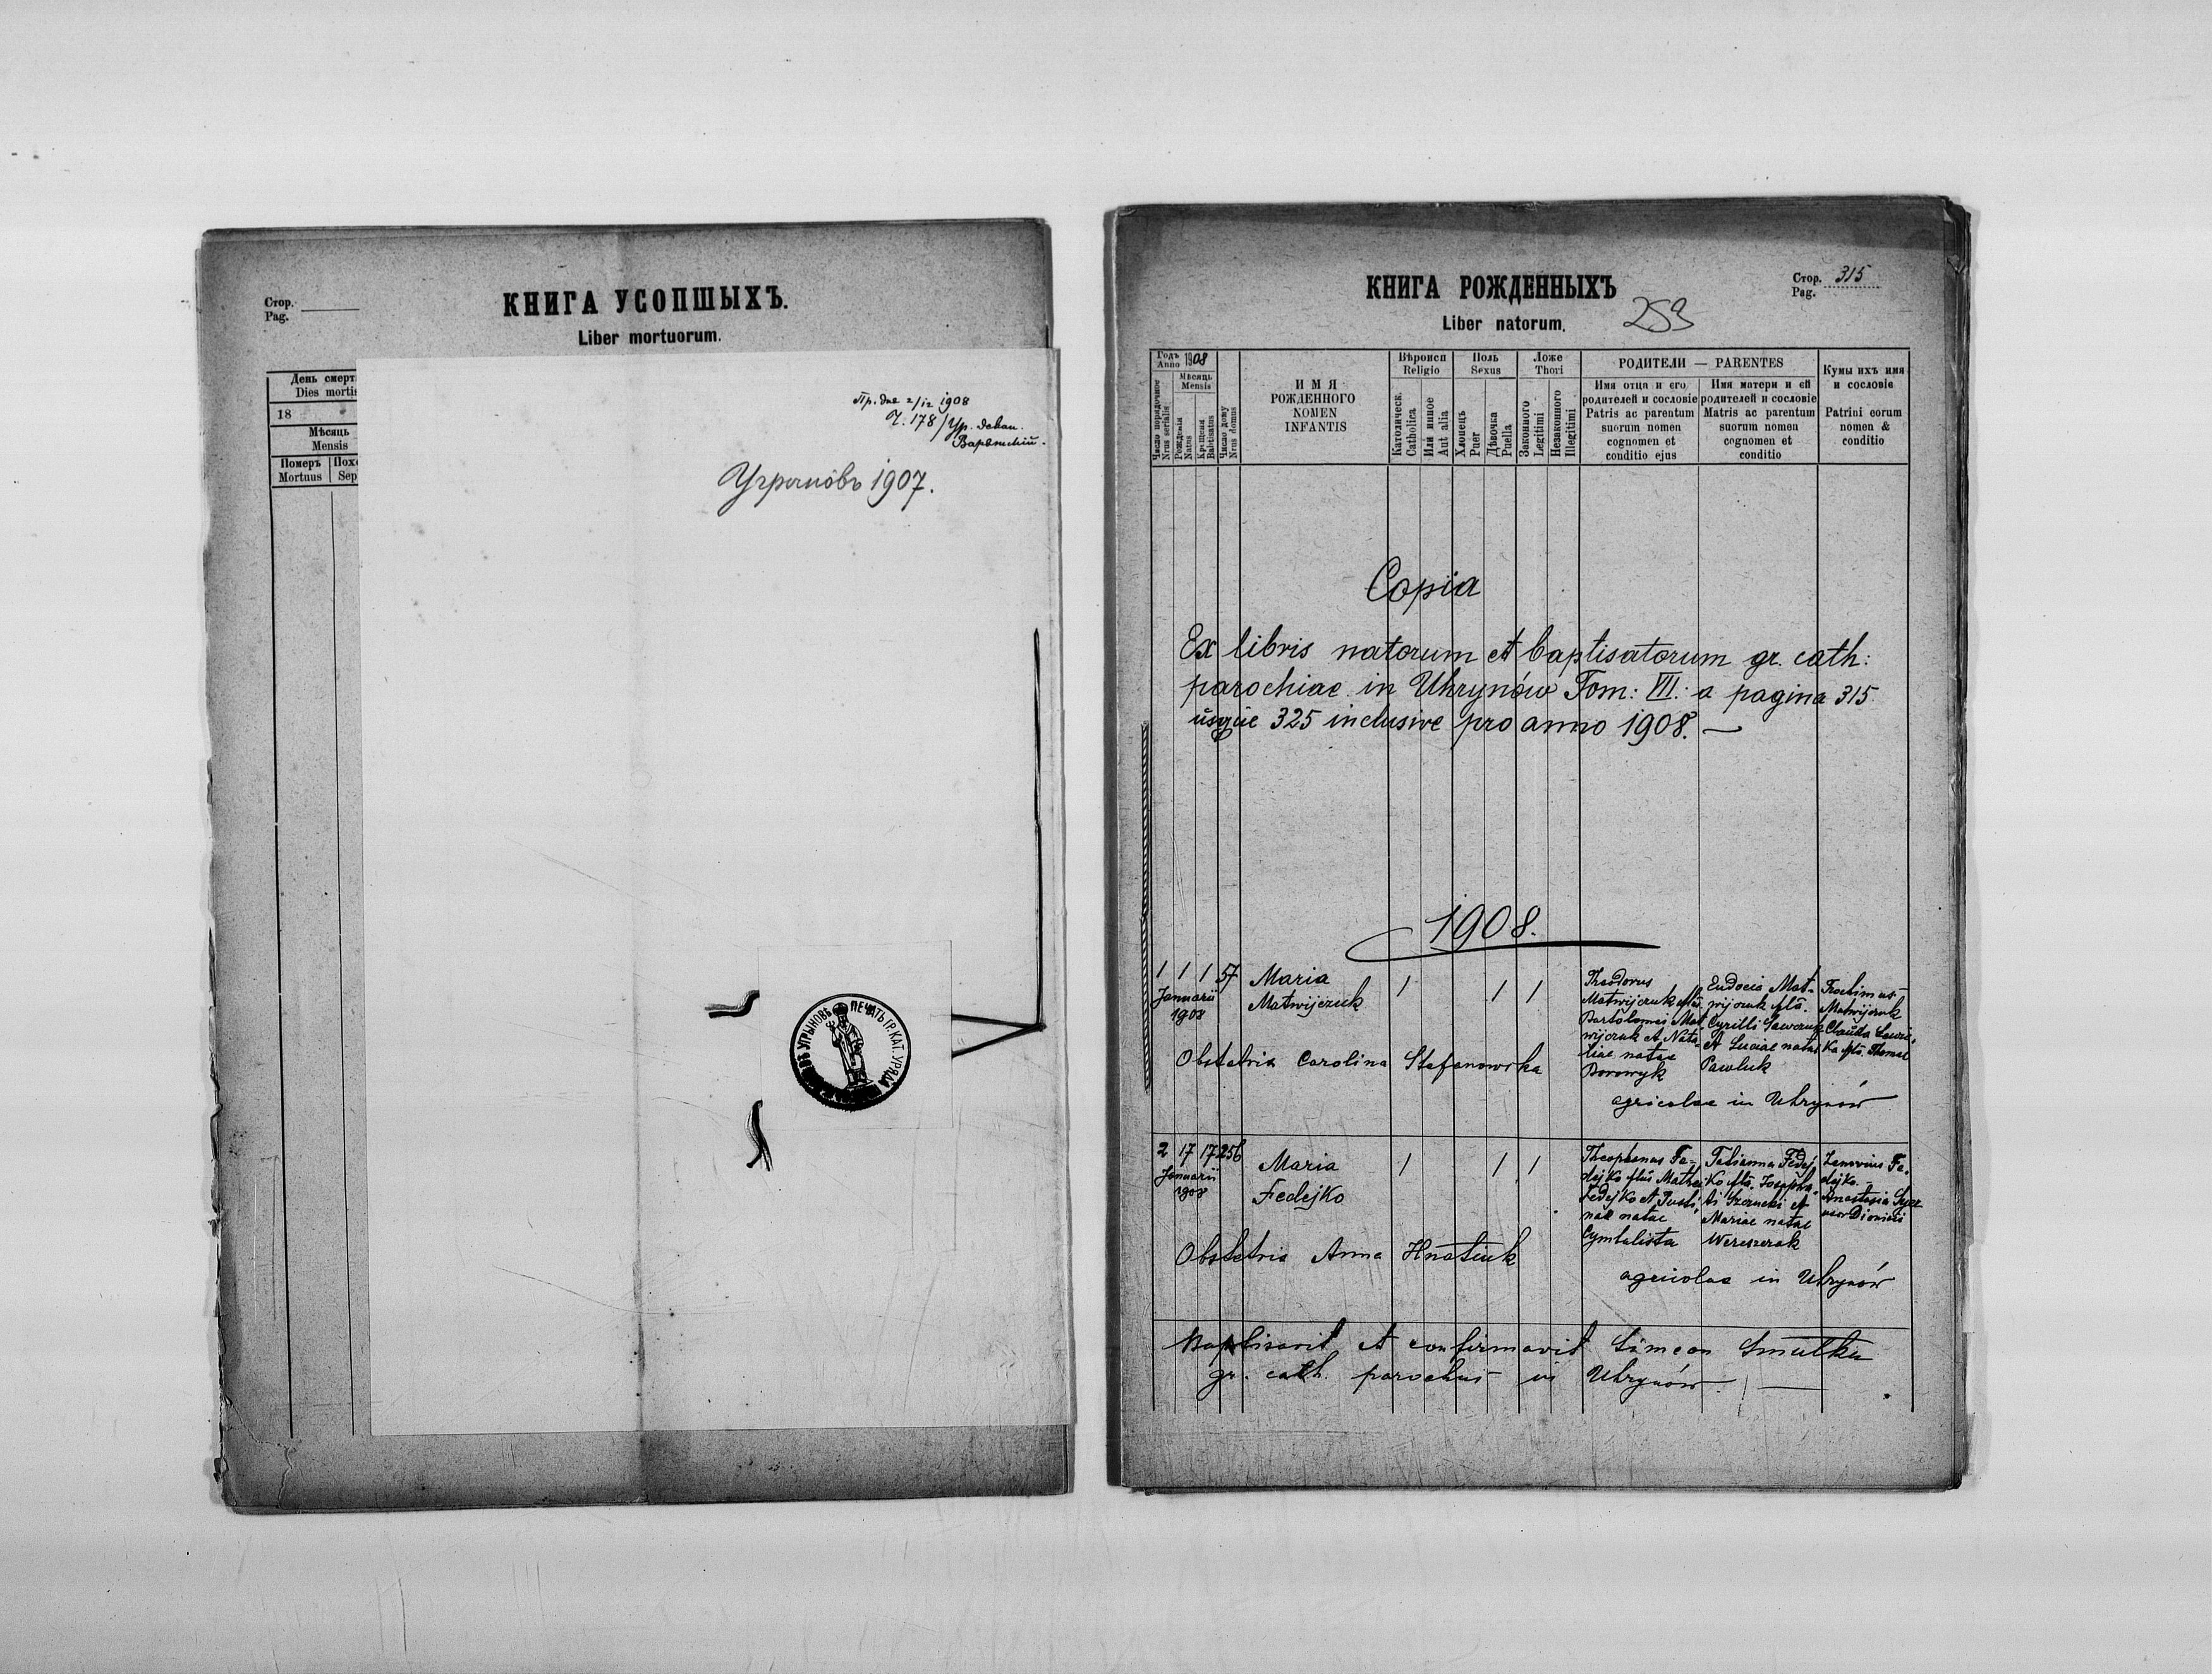 Стор.
Pag.
КНИГА УСОПШЫХЪ.
Liber mortuorum.
День смерт
Dies mortis
18
Мѣсяць
Mensis
Померъ
Mortuus
Sep
Пр. дня 2/12 1908
Ч. 178 / Ур. декан.
Угрыновъ 1907.
ПЕЧАТЬ ГР. КАТ. УРЯДА
ВЪ УГРЫНОВѢ
КНИГА РОЖДЕННЫХЪ
Liber natorum.
259
Стор. 315
Pag.
Годъ
Anno 1908
Мѣсяць
Mensis
Число порядочное
Nrus serialis
Рожденія
Natus
Крещенія
Babtisatus
Число дому
Nrus domus
ИМЯ
РОЖДЕННОГО
NOMEN
INFANTIS
Вѣроисп
Religio
Католическ.
Catholica
Или инное
Aut alia
Полъ
Sexus
Хлопецъ
Puer
Дѣвочка
Puella
Ложе
Thori
Законного
Legitimi
Незаконного
Illegitimi
РОДИТЕЛИ — PARENTES
Имя отца и его
родителей и сословіе
Patris ac parentum
suorum nomen
cognomen et
conditio ejus
Имя матери и ей
родителей и сословіе
Matris ac parentum
suorum nomen
cognomen et
conditio
Кумы ихъ имя
и сословіе
Patrini eorum
nomen &
conditio
Copia
Ex libris natorum et baptisatorum gr. cath:
parochiae in Uhrynów Tom: VII: a pagina 315
usque 325 inclusive pro anno 1908. —
1908.
1 1 1 57
Januarii
1908
Maria
Matwijczuk
1 1 1
Theodorus
Matwijczuk
Bartolomei Mat
wijczuk et Nata-
liae natae
Borowyk
Eudocia Mat-
wijczuk
Cyrilli
et Luciae natae
Pawluk
Matwijczuk
Thomae
Obstetrix Carolina Stefanowska
agricolae in Uhrynów
2 17 17 256
Januarii
1908
Maria
Fedejko
1 1 1
Theophanus Fe-
dejko filius Mathei
Fedejko et Justi-
nae natae
Cymbalista
Tatianna Fedej-
ko
Mariae natae
Wereszczak
Zenovius Fe-
dejko.
Anastasia
Dionisii
Obstetrix Anna Hnatiuk
agricolae in Uhrynów
Baptisavit et confirmavit Simeon Smulka
gr. cath. parochus in Uhrynów. —